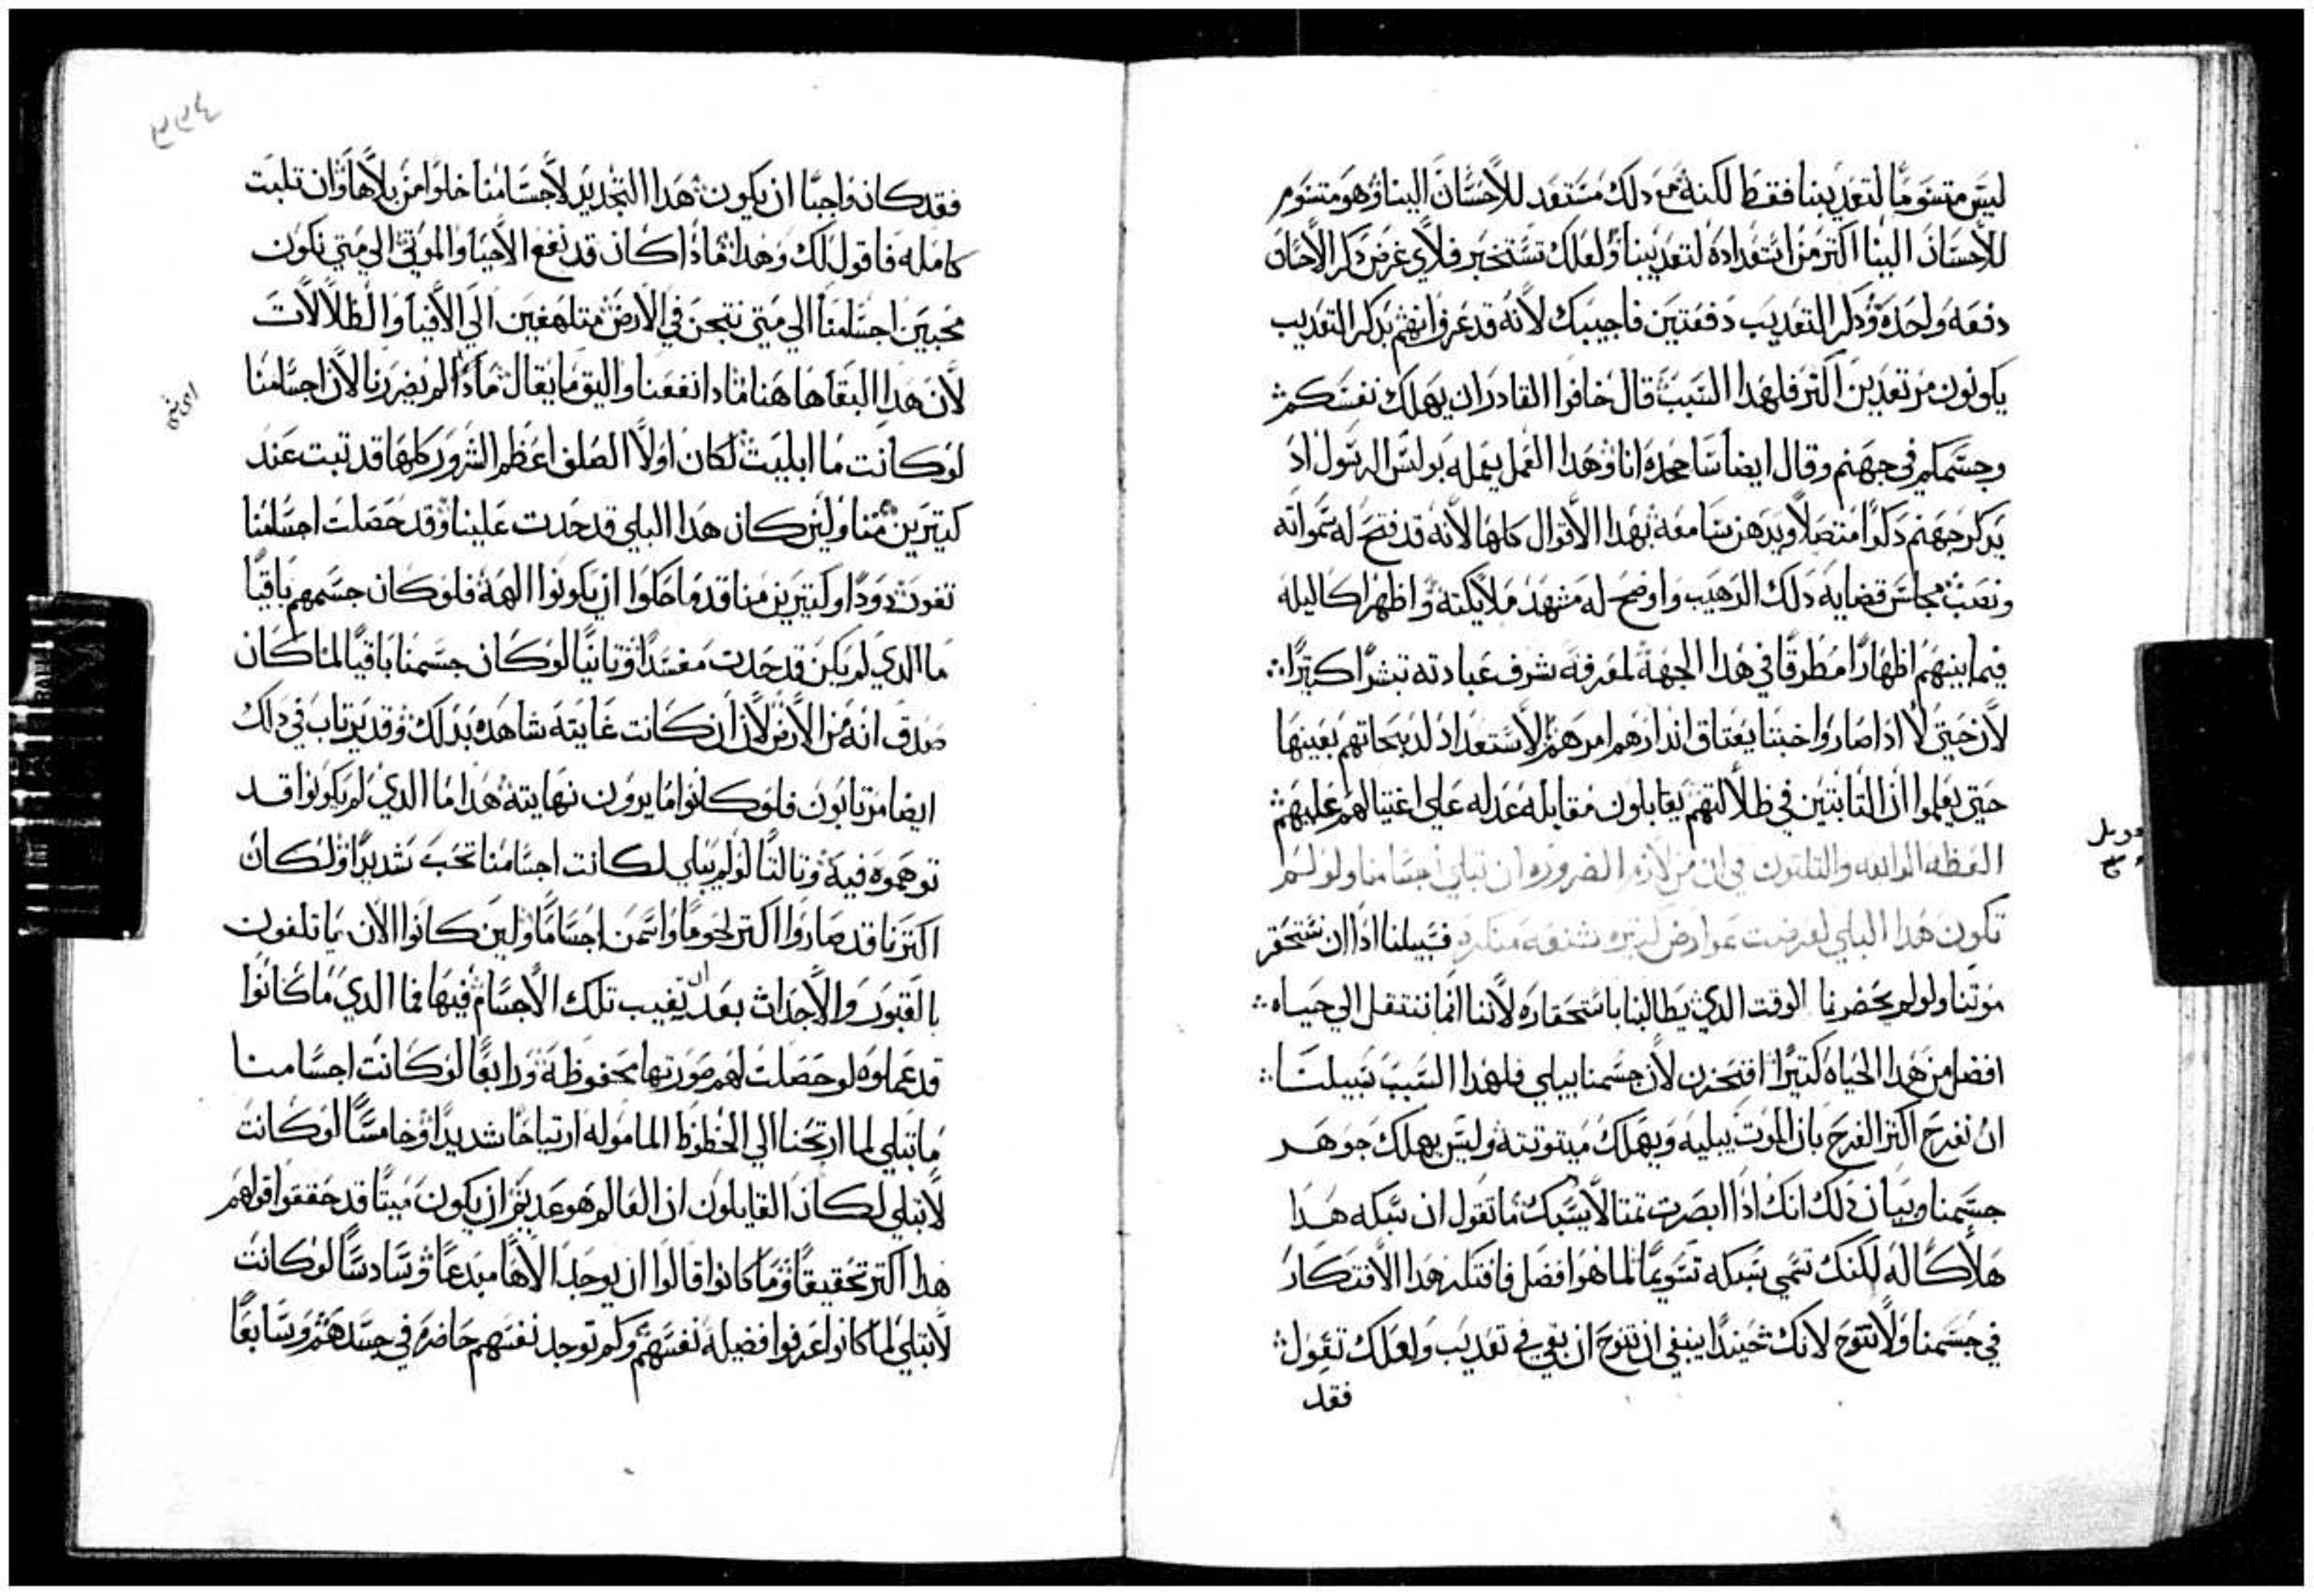 ليس متسوما لتعديبنا فقط لكنه مع دلك مستعد للاحسان الينا وهو متسوم
للاحسان الينا اكتر من استعداده لتعديبنا ولعلك تستخبر فلاي غرض دكر الاحسان
دفعه واحده ودكر التعديب دفعتين فاجيبك لانه قد عرف انهم بدكر التعديب
يكونون مرتعدين اكتر فلهدا السبب قال خافوا القادر ان يهلك نفسكم
وجسمكم في جهنم وقال ايضا سامحده انا وهدا العمل يعمله بولس الرسول اد
يدكر جهنم دكرا متصلا ويدهن سامعه بهدا الاقوال كلها لانه قد فتح له سمواته
ونصب مجلس قضايه دلك الرهيب واوضح له مشهد ملايكته واظهر اكاليله
فيما بينهم اظهارا مطرقا في هدا الجهه لمعرفه شرف عبادته تبشرا كتيرا
لان حيتي لا ادا صاروا خبتا يعتاق اندارهم امرهم الاستعداد لدبيحاتهم بعينها
حتي يعلموا ان التابتين في ظلالتهم يقابلون مقابله عدله علي اغتيالهم عليهم
العظه الرابعه والتلتون في ان من لازم الضروره ان تبلي اجسامنا ولو لم
تكون هدا البلي لعرضت عوارض كتيره شنعه منكره فسبيلنا ادا ان نستحقر
موتنا ولو لم يحضرنا الوقت الدي يطالبنا باستحقاره لاننا انما ننتقل الي حياه
افضل من هدا الحياه كتيرا افتحزن لان جسمنا يبلي فلهدا السبب سبيلنا
ان نفرح اكتر الفرح بان الموت يبليه ويهلك ميتوتته وليس يهلك جوهر
جسمنا وبيان دلك انك ادا ابصرت تمتالا يسبك ما تقول ان سبكه هدا
هلاكا له لكنك تسمي سبكه تسويما لما هو افضل فافتكر هدا الافتكار
في جسمنا ولا تنوح لانك حينيدا ينبغي ان تنوح ان بقي في تعديب ولعلك تقول
فقد
فقد كان واجبا ان يكون هدا التجديد لاجسامنا خلوا من بلاها وان تلبت
كامله فاقول لك وهدا فمادا كان قد نفع الاحيا والموتي الي متي نكون
محبين اجسامنا الي متي نتجن في الارض متلهفين الي الافيا والظلالات
لان هدا البقا هاهنا مادا انفعنا واليق ما يقال مادا لم يضررنا لان اجسامنا
لو كانت ما ابليت لكان اولا الصلف اعظم الشرور كلها قد تبت عند
كتيرين منا ولين كان هدا البلي قد حدت علينا وقد حصلت اجسامنا
تفوت دودا وكتيرين منا قد ماحكوا ان يكونوا الهه فلو كان جسمهم باقيا
ما الدي لم يكن قد حدت مفسدا وتانيا لو كان جسمنا باقيا لما كان
صدق انه من الارض لان ان كانت غايته شاهده بدلك وقد يرتاب في دلك
ايضا مرتابون فلو كانوا ما يرون نهايته هدا ما الدي لم يكونوا قد
توهموه فيه وتالتا لو لم يبلي لكانت اجسامنا تحب شديدا ولكان
اكترنا قد صاروا اكتر لحوما واسمن اجساما ولين كانوا الان يماتلفون
بالقبور والاجدات بعد ان تغيب تلك الاجسام فيها فما الدي ما كانوا
قد عملوه لو حصلت لهم صورتها محفوظة ورابعا لو كانت اجسامنا
ما تبلي لما ارتحنا الي الحظوظ الماموله ارتياحا شديدا وخامسا لو كانت
لا تبلي لكان القايلون ان العالم هو عديم ان يكون ميتا قد حققوا قولهم
هدا اكتر تحقيقا وما كانوا قالوا ان يوجد الاها مبدعا وسادسا لو كانت
لا تبلي لما كانوا عرفوا فضيلة نفسهم وكم توجد نفسهم حاضره في جسدهم وسابعا